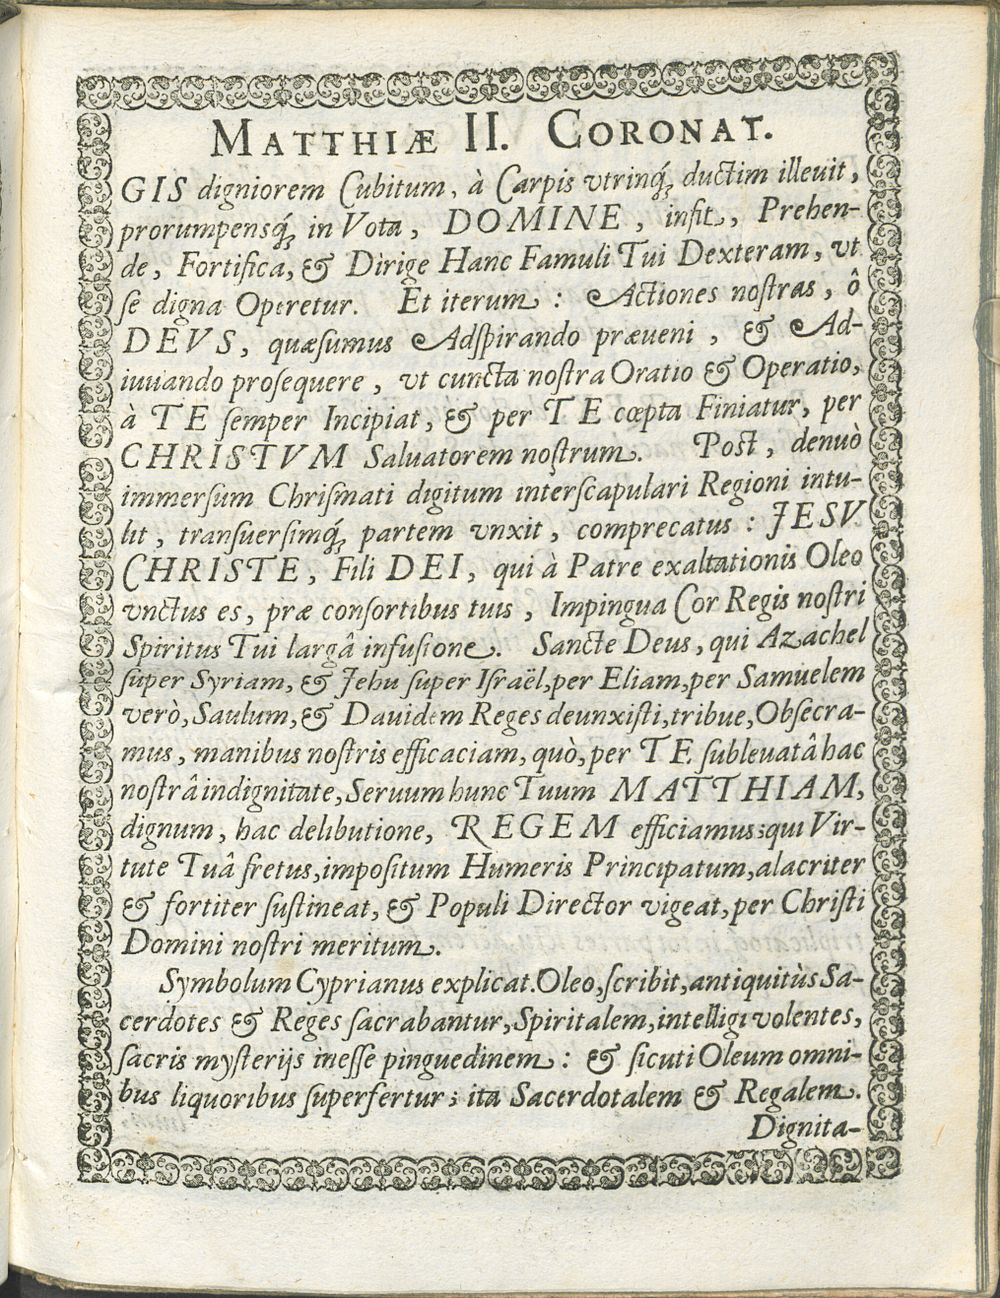 MATTHIÆ II. CORONAT.
GIS digniorem Cubitum, à Carpis vtrinq́; ductim illeuit,
prorumpensq́; in Vota, DOMINE, infit, Prehen-
de, Fortifica, & Dirige Hanc Famuli Tui Dexteram, vt
se digna Operetur. Et iterum: Actiones nostras, ô
DEVS, quæsumus Adspirando præueni, & Ad-
iuuando prosequere, vt cuncta nostra Oratio & Operatio,
à TE semper Incipiat, & per TE cœpta Finiatur, per
CHRISTVM Saluatorem nostrum. Post, denuò
immersum Chrismati digitum interscapulari Regioni intu-
lit, transuersimq́; partem vnxit, comprecatus: JESV
CHRISTE, Fili DEI, qui à Patre exaltationis Oleo
vnctus es, præ consortibus tuis, Impingua Cor Regis nostri
Spiritus Tui largâ infusione. Sancte Deus, qui Azachel
super Syriam, & Jehu super Israël, per Eliam, per Samuelem
verò, Saulum, & Dauidem Reges deunxisti, tribue, Obsecra-
mus, manibus nostris efficaciam, quò, per TE subleuatâ hac
nostrâ indignitate, Seruum hunc Tuum MATTHIAM,
dignum, hac delibutione, REGEM efficiamus; qui Vir-
tute Tuâ fretus, impositum Humeris Principatum, alacriter
& fortiter sustineat, & Populi Director vigeat, per Christi
Domini nostri meritum.
Symbolum Cyprianus explicat. Oleo, scribit, antiquitùs Sa-
cerdotes & Reges sacrabantur, Spiritalem, intelligi volentes,
sacris mysterijs inesse pinguedinem: & sicuti Oleum omni-
bus liquoribus superfertur; ita Sacerdotalem & Regalem.
Dignita-